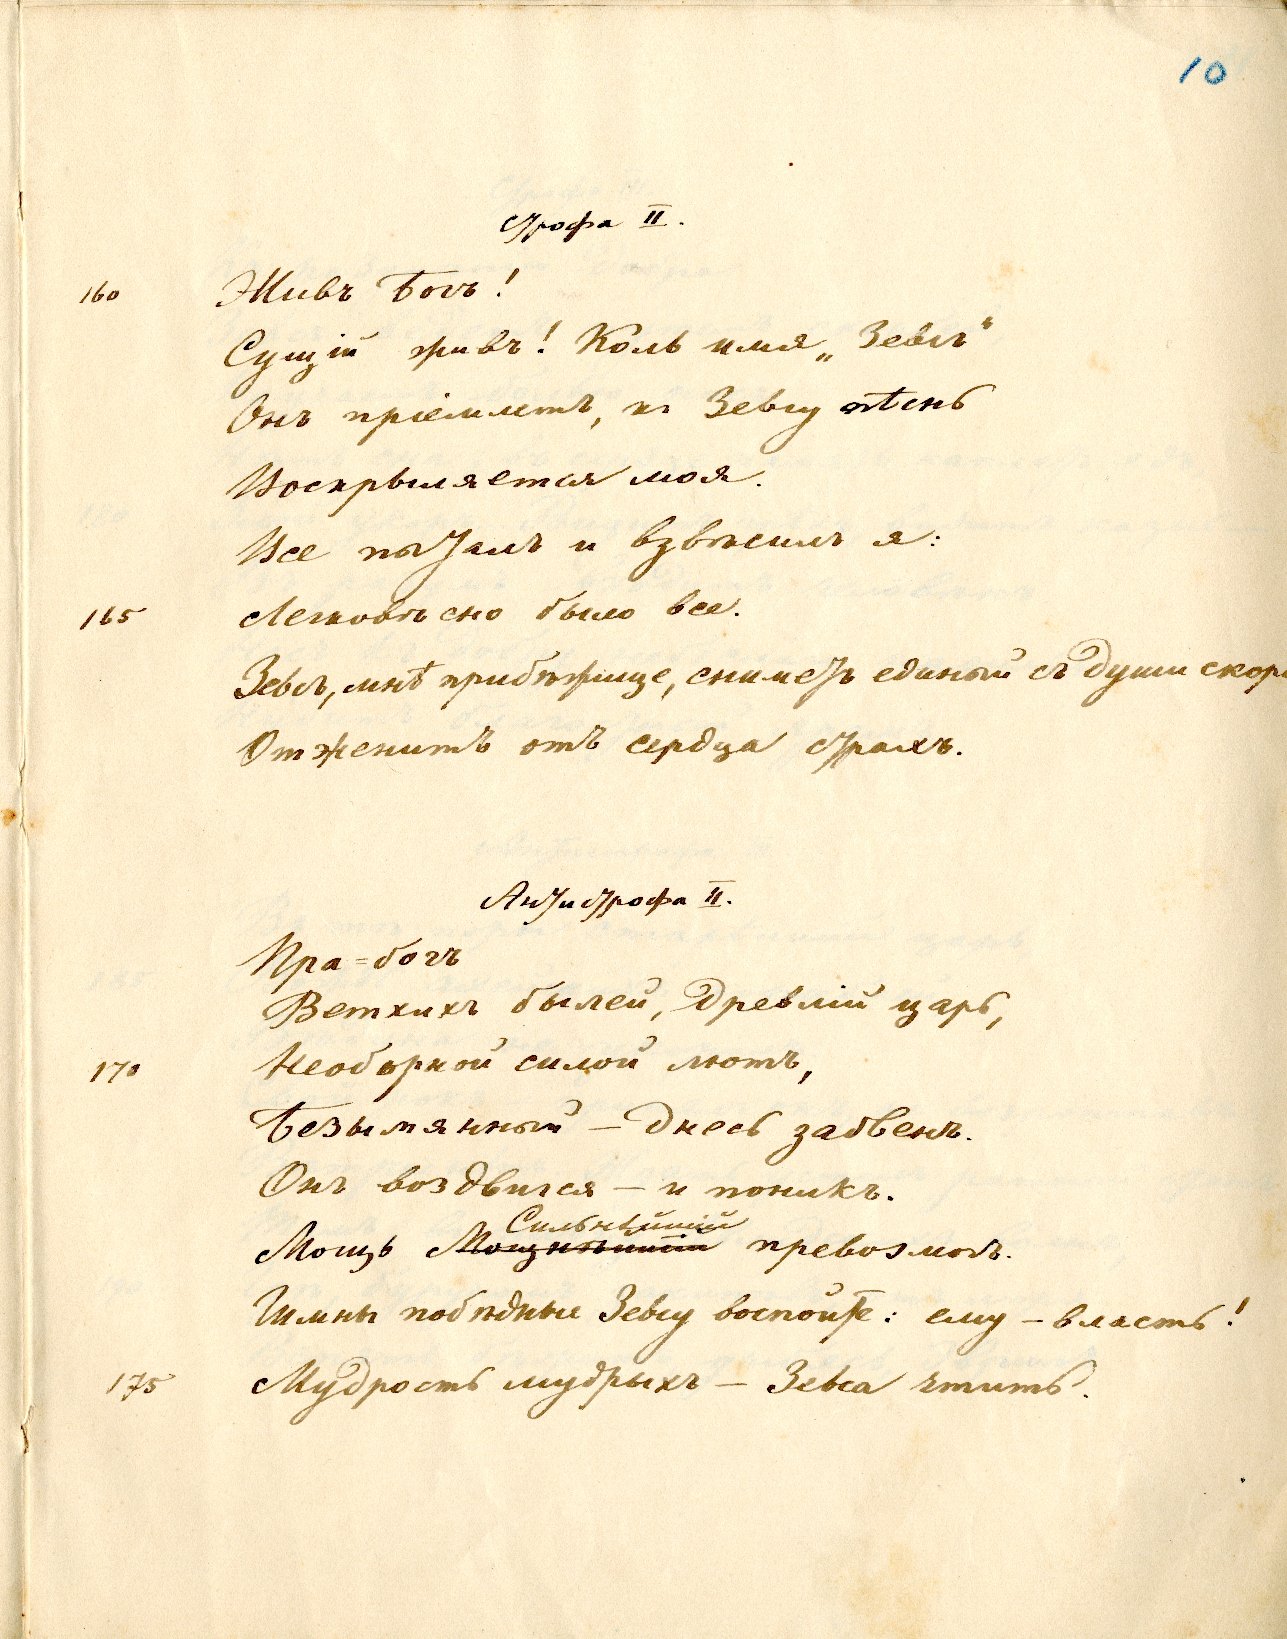 10
Строфа II.
160 Живъ Богъ!
Сущій живъ! Коль имя „Зевсъ“
Онъ пріемлетъ, къ Зевсу пѣснь
Воскрыляется моя.
Все пыталъ и взвѣсилъ я:
165 Легковѣсно было все.
Зевсъ, мнѣ прибѣжище, сниметъ единый съ души скорб
Отженитъ отъ сердца страхъ.
Антистрофа II.
Пра=богъ
Ветхихъ былей, древлій царь,
170 Необорной силой лютъ,
Безымянный – днесь забвенъ.
Онъ воздвигся – и поникъ.
Сильнѣйшій
Мощь Мощнѣйшій превозмогъ.
Гимны побѣдные Зевсу воспойте: ему – власть!
175 Мудрость мудрыхъ – Зевса чтить.